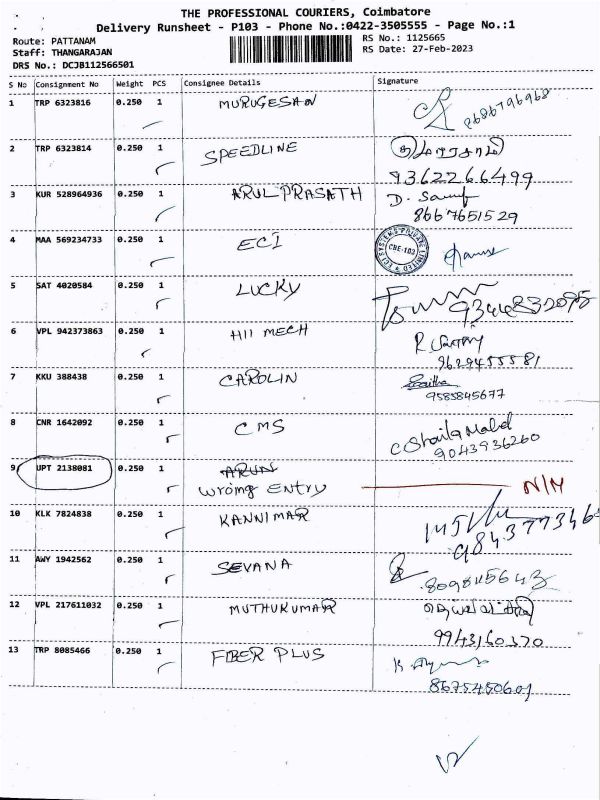 THE PROFESSIONAL COURIERS, Coimbatore
Delivery Runsheet - P103 - Phone No.:0422-3505555 - Page No.:1
Route: PATTANAM RS No.: 1125665
Staff: THANGARAJAN RS Date: 27-Feb-2023
DRS No.: DCJB112566501
S No Consignment No Weight PCS Consignee Details Signature
1 TRP 6323816 0.250 1 MURUGESAN 8686796968
2 TRP 6323814 0.250 1 SPEEDLINE
9362266499
3 KUR 528964936 0.250 1 ARUL PRASATH D.
8667651529
4 MAA 569234733 0.250 1 ECI ECI SYSTEMS PRIVATE LIMITED CBE-103
5 SAT 4020584 0.250 1 LUCKY 9344832095
6 VPL 942373863 0.250 1 HII MECH R
9629455581
7 KKU 388438 0.250 1 CAROLIN
9585845677
8 CNR 1642092 0.250 1 CMS
9043936260
9 UPT 2138081 0.250 1 ARUN
Wromg ENTRY N/M
10 KLK 7824838 0.250 1 KANNIMAR
11 AWY 1942562 0.250 1 SEVANA
12 VPL 217611032 0.250 1 MUTHUKUMAR
9943160370
13 TRP 8085466 0.250 1 FIBER PLUS K
8675450601